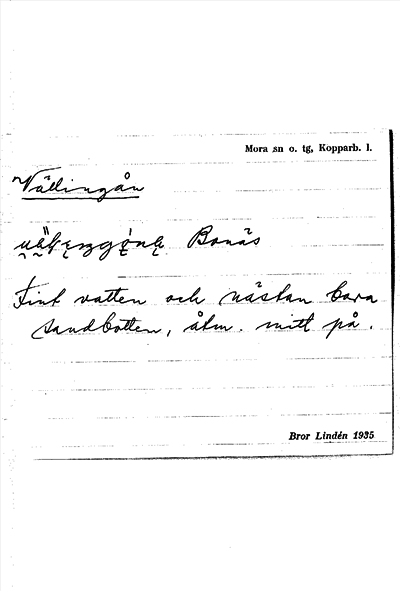 Mora sn o. tg, Kopparb. l.
Vällingån
Bonäs
Fint vatten och nästan bara
sandbotten, åtm. mitt på.
Bror Lindén 1935